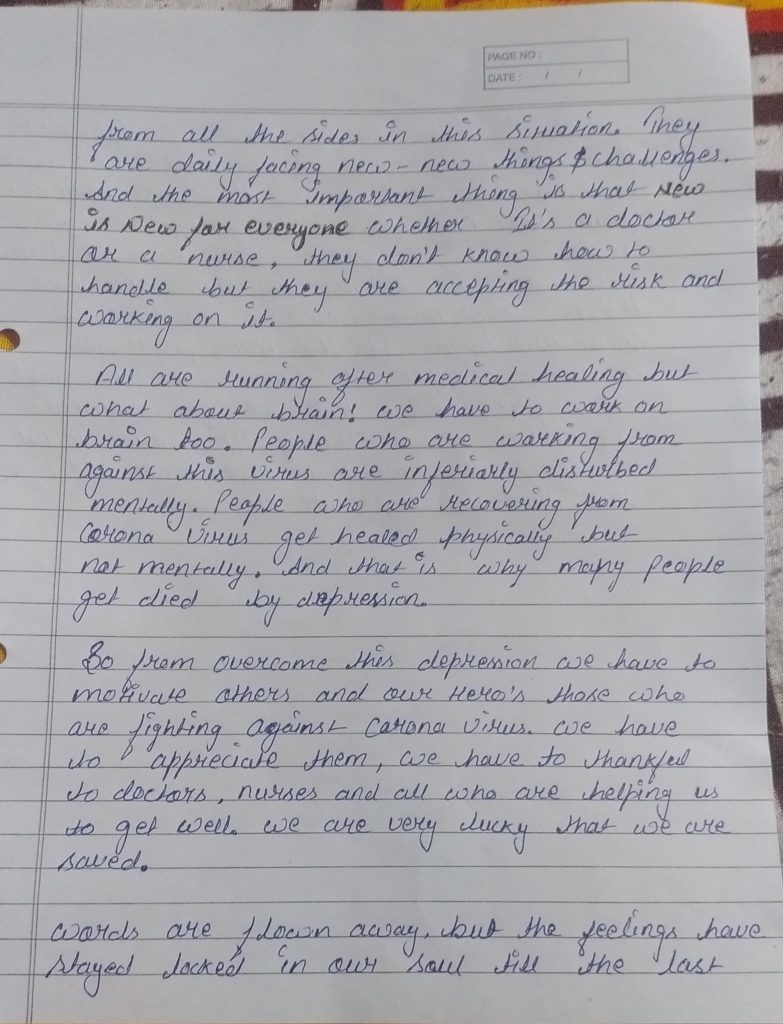 PAGE NO :
DATE : / /
from all the sides in this situation. They
are daily facing new - new things & challenges.
And the most important thing is that New
is New for everyone whether It's a doctor
or a nurse, they don't know how to
handle but they are accepting the risk and
working on it.
All are running after medical healing but
what about brain! we have to work on
brain too. People who are working from
against this virus are inferiarly disturbed
mentally. People who are recovering from
Corona Virus get healed physically but
not mentally. And that is why many people
get died by depression.
So from overcome this depression we have to
motivate others and our Hero's those who
are fighting against Corona virus. we have
to appreciate them, we have to thankful
to doctors, nurses and all who are helping us
to get well. we are very lucky that we are
saved.
words are flown away, but the feelings have
stayed locked in our soul till the last